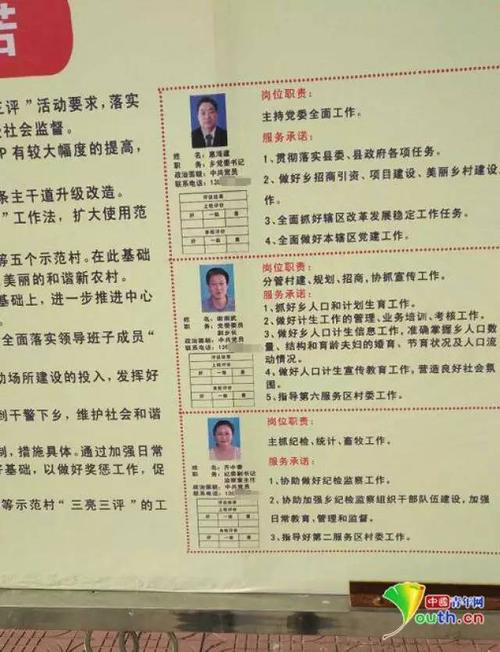 诺
三评”活动要求，落实
社会监督。
P 有较大幅度的提高，
条主干道升级改造。
”工作法，扩大使用范
等五个示范村。在此基础
美丽的和谐新农村。
基础上，进一步推进中心
全面落实领导班子成员“
动场所建设的投入，发挥好
到干警下乡，维护社会和谐
制，措施具体。通过加强日常
好基础，以做好奖惩工作，促
等示范村“三亮三评”的工
姓 名：惠鸿建
职 务：乡党委书记
政治面貌：中共党员
联系电话：13
评议结果
上级评价
好 一般 差
群众评价
好 一般 差
岗位职责：
主持党委全面工作。
服务承诺：
1、贯彻落实县委、县政府各项任务。
2、做好乡招商引资、项目建设、美丽乡村建设
作。
3、全面抓好辖区改革发展稳定工作任务。
4、全面做好本辖区党建工作。
职 务：党委委员
副乡长
政治面貌：中共党员
联系电话：13
评议结果
上级评价
好 一般 差
群众评价
好 一般 差
岗位职责：
分管村建、规划、招商，协抓宣传工作。
服务承诺：
1、抓好乡人口和计划生育工作。
2、做好计生工作的管理、业务培训、考核工作。
3、做好乡人口计生信息工作，准确掌握乡人口数
量、结构和育龄夫妇的婚育、节育状况及人口流
动情况。
4、做好人口计生宣传教育工作，营造良好社会氛
围。
5、指导第六服务区村委工作。
姓 名：齐中睿
职 务：纪委副书记
监察室主任
政治面貌：中共党员
联系电话：13
评议结果
上级评价
好 一般 差
群众评价
好 一般 差
岗位职责：
主抓纪检、统计、畜牧工作。
服务承诺：
1、协助做好纪检监察工作。
2、协助加强乡纪检监察组织干部队伍建设，加强
日常教育、管理和监督。
3、指导好第二服务区村委工作。
中國青年网
Youth.cn